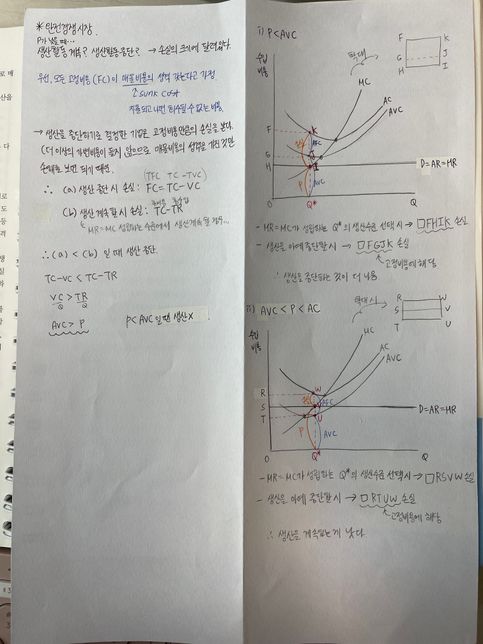 * 완전경쟁시장
P가 낮을 때...
생산활동 계속? 생산활동중단? → 손실의 크기에 달려있다.
우선, 모든 고정비용(FC)이 매몰비용의 성격 가진다고 가정
↑ sunk cost
지출되고 나면 회수될 수 없는 비용
→ 생산을 중단하기로 결정한 기업은 고정비용만큼의 손실을 본다.
(더 이상의 가변비용이 들지 않으므로 매몰비용의 성격을 가진 것만
손해를 보면 되기 때문)
(TFC TC-TVC)
∴ (a) 생산 중단 시 손실 : FC = TC - VC
총비용 총수입
(b) 생산 계속할 시 손실 : TC - TR
MR=MC 성립하는 수준에서 생산계속할 경우...
∴ (a) < (b) 일 때 생산 중단
TC-VC < TC-TR
VC > TR
Q Q
AVC > P
P<AVC 일 때 생산 X
i) P<AVC
수입
비용
확대
F K
G J
H I
MC
AC
AVC
F
G
H
K
J
I
AFC
P
AVC
D=AR=MR
0
Q*
Q
- MR=MC가 성립하는 Q*의 생산수준 선택 시 → □FHIK 손실
- 생산을 아예 중단할 시 → □FGJK 손실
고정비용에 해당
∴ 생산을 중단하는 것이 더 나음
ii) AVC<P<AC
수입
비용
확대 시
R W
S V
T U
MC
AC
AVC
R
S
T
W
V
U
AFC
P
AVC
D=AR=MR
0
Q*
Q
- MR=MC가 성립하는 Q*의 생산수준 선택 시 → □RSVW 손실
- 생산을 아예 중단할 시 → □RTUW 손실
고정비용에 해당
∴ 생산을 계속하는 게 낫다.